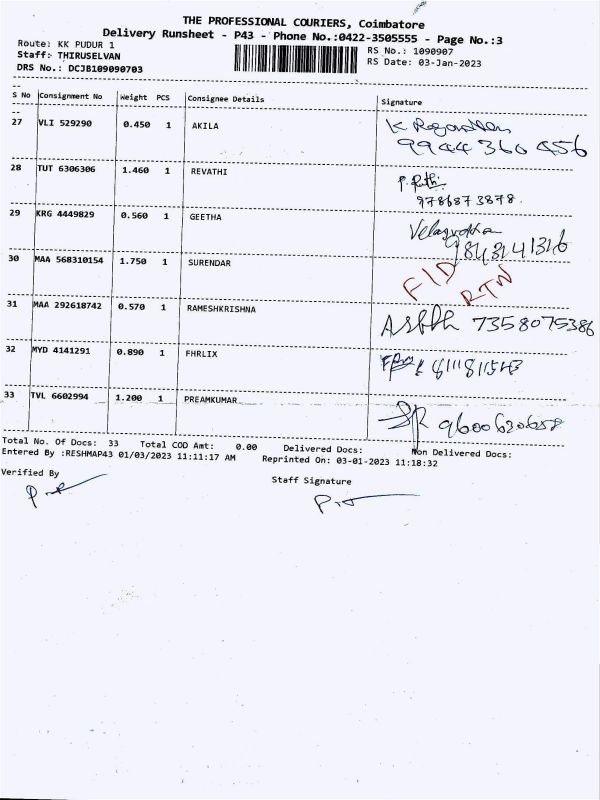 THE PROFESSIONAL COURIERS, Coimbatore
Delivery Runsheet - P43 - Phone No.:0422-3505555 - Page No.:3
Route: KK PUDUR 1
RS No.: 1090907
Staff: THIRUSELVAN
RS Date: 03-Jan-2023
DRS No.: DCJB109090703
S No Consignment No Weight PCS Consignee Details Signature
27 VLI 529290 0.450 1 AKILA
9944360456
28 TUT 6306306 1.460 1 REVATHI
9786873878.
29 KRG 4449829 0.560 1 GEETHA
30 MAA 568310154 1.750 1 SURENDAR
RTN
31 MAA 292618742 0.570 1 RAMESHKRISHNA 7358075386
32 MYD 4141291 0.890 1 FHRLIX
33 TVL 6602994 1.200 1 PREAMKUMAR
9600620658
Total No. Of Docs: 33 Total COD Amt: 0.00 Delivered Docs: Non Delivered Docs:
Entered By :RESHMAP43 01/03/2023 11:11:17 AM Reprinted On: 03-01-2023 11:18:32
Verified By
Staff Signature